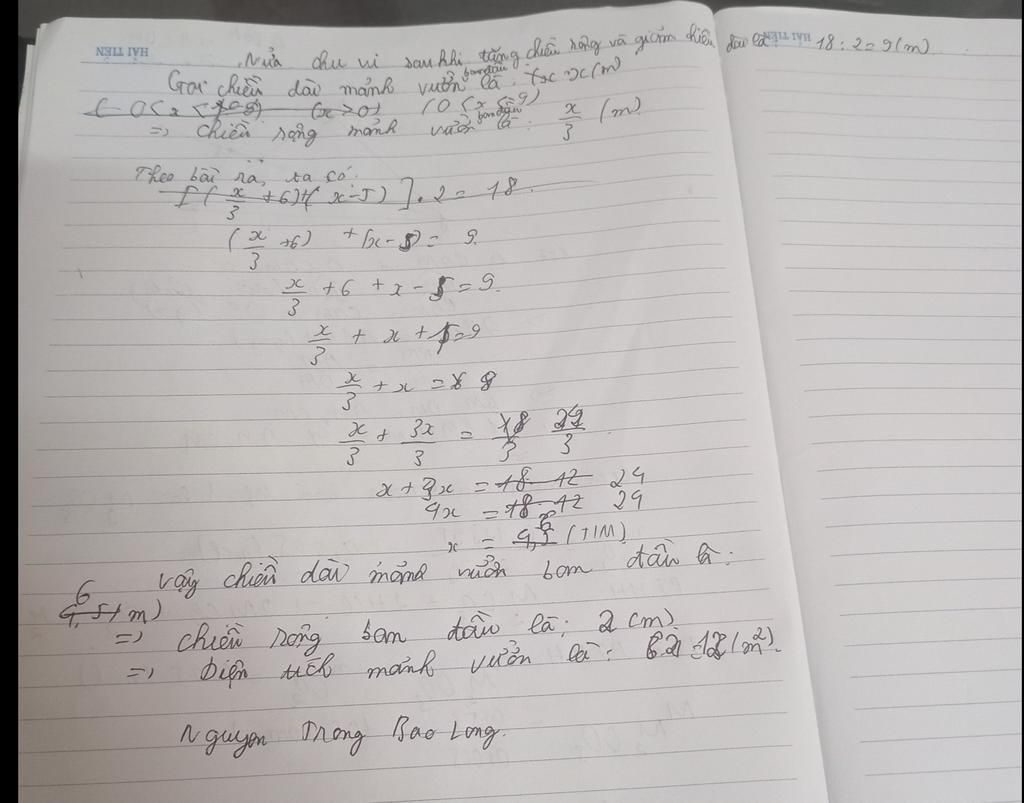 HẢI TIẾN
HẢI TIẾN
Nửa chu vi sau khi tăng chiều rộng và giảm chiều dài là 18 : 2 = 9 (m)
Gọi chiều dài mảnh vườn ban đầu là: x (m)
(x > 0) (0 < x < 9)
=> chiều rộng mảnh vườn ban đầu là: x/3 (m)
Theo bài ra, ta có:
[(x/3 + 6) + (x - 5)] . 2 = 18
(x/3 + 6) + (x - 5) = 9
x/3 + 6 + x - 5 = 9
x/3 + x + 1 = 9
x/3 + x = 8
x/3 + 3x/3 = 18/3 24/3
x + 3x = 18 - 12 24
4x = 18 - 12 24
x = 4,5 6 (TM)
Vậy chiều dài mảnh vườn ban đầu là:
6 4,5 (m)
=> chiều rộng ban đầu là: 2 (m)
=> Diện tích mảnh vườn là: 6.2 = 12 (m²)
Nguyen Trong Bao Long.